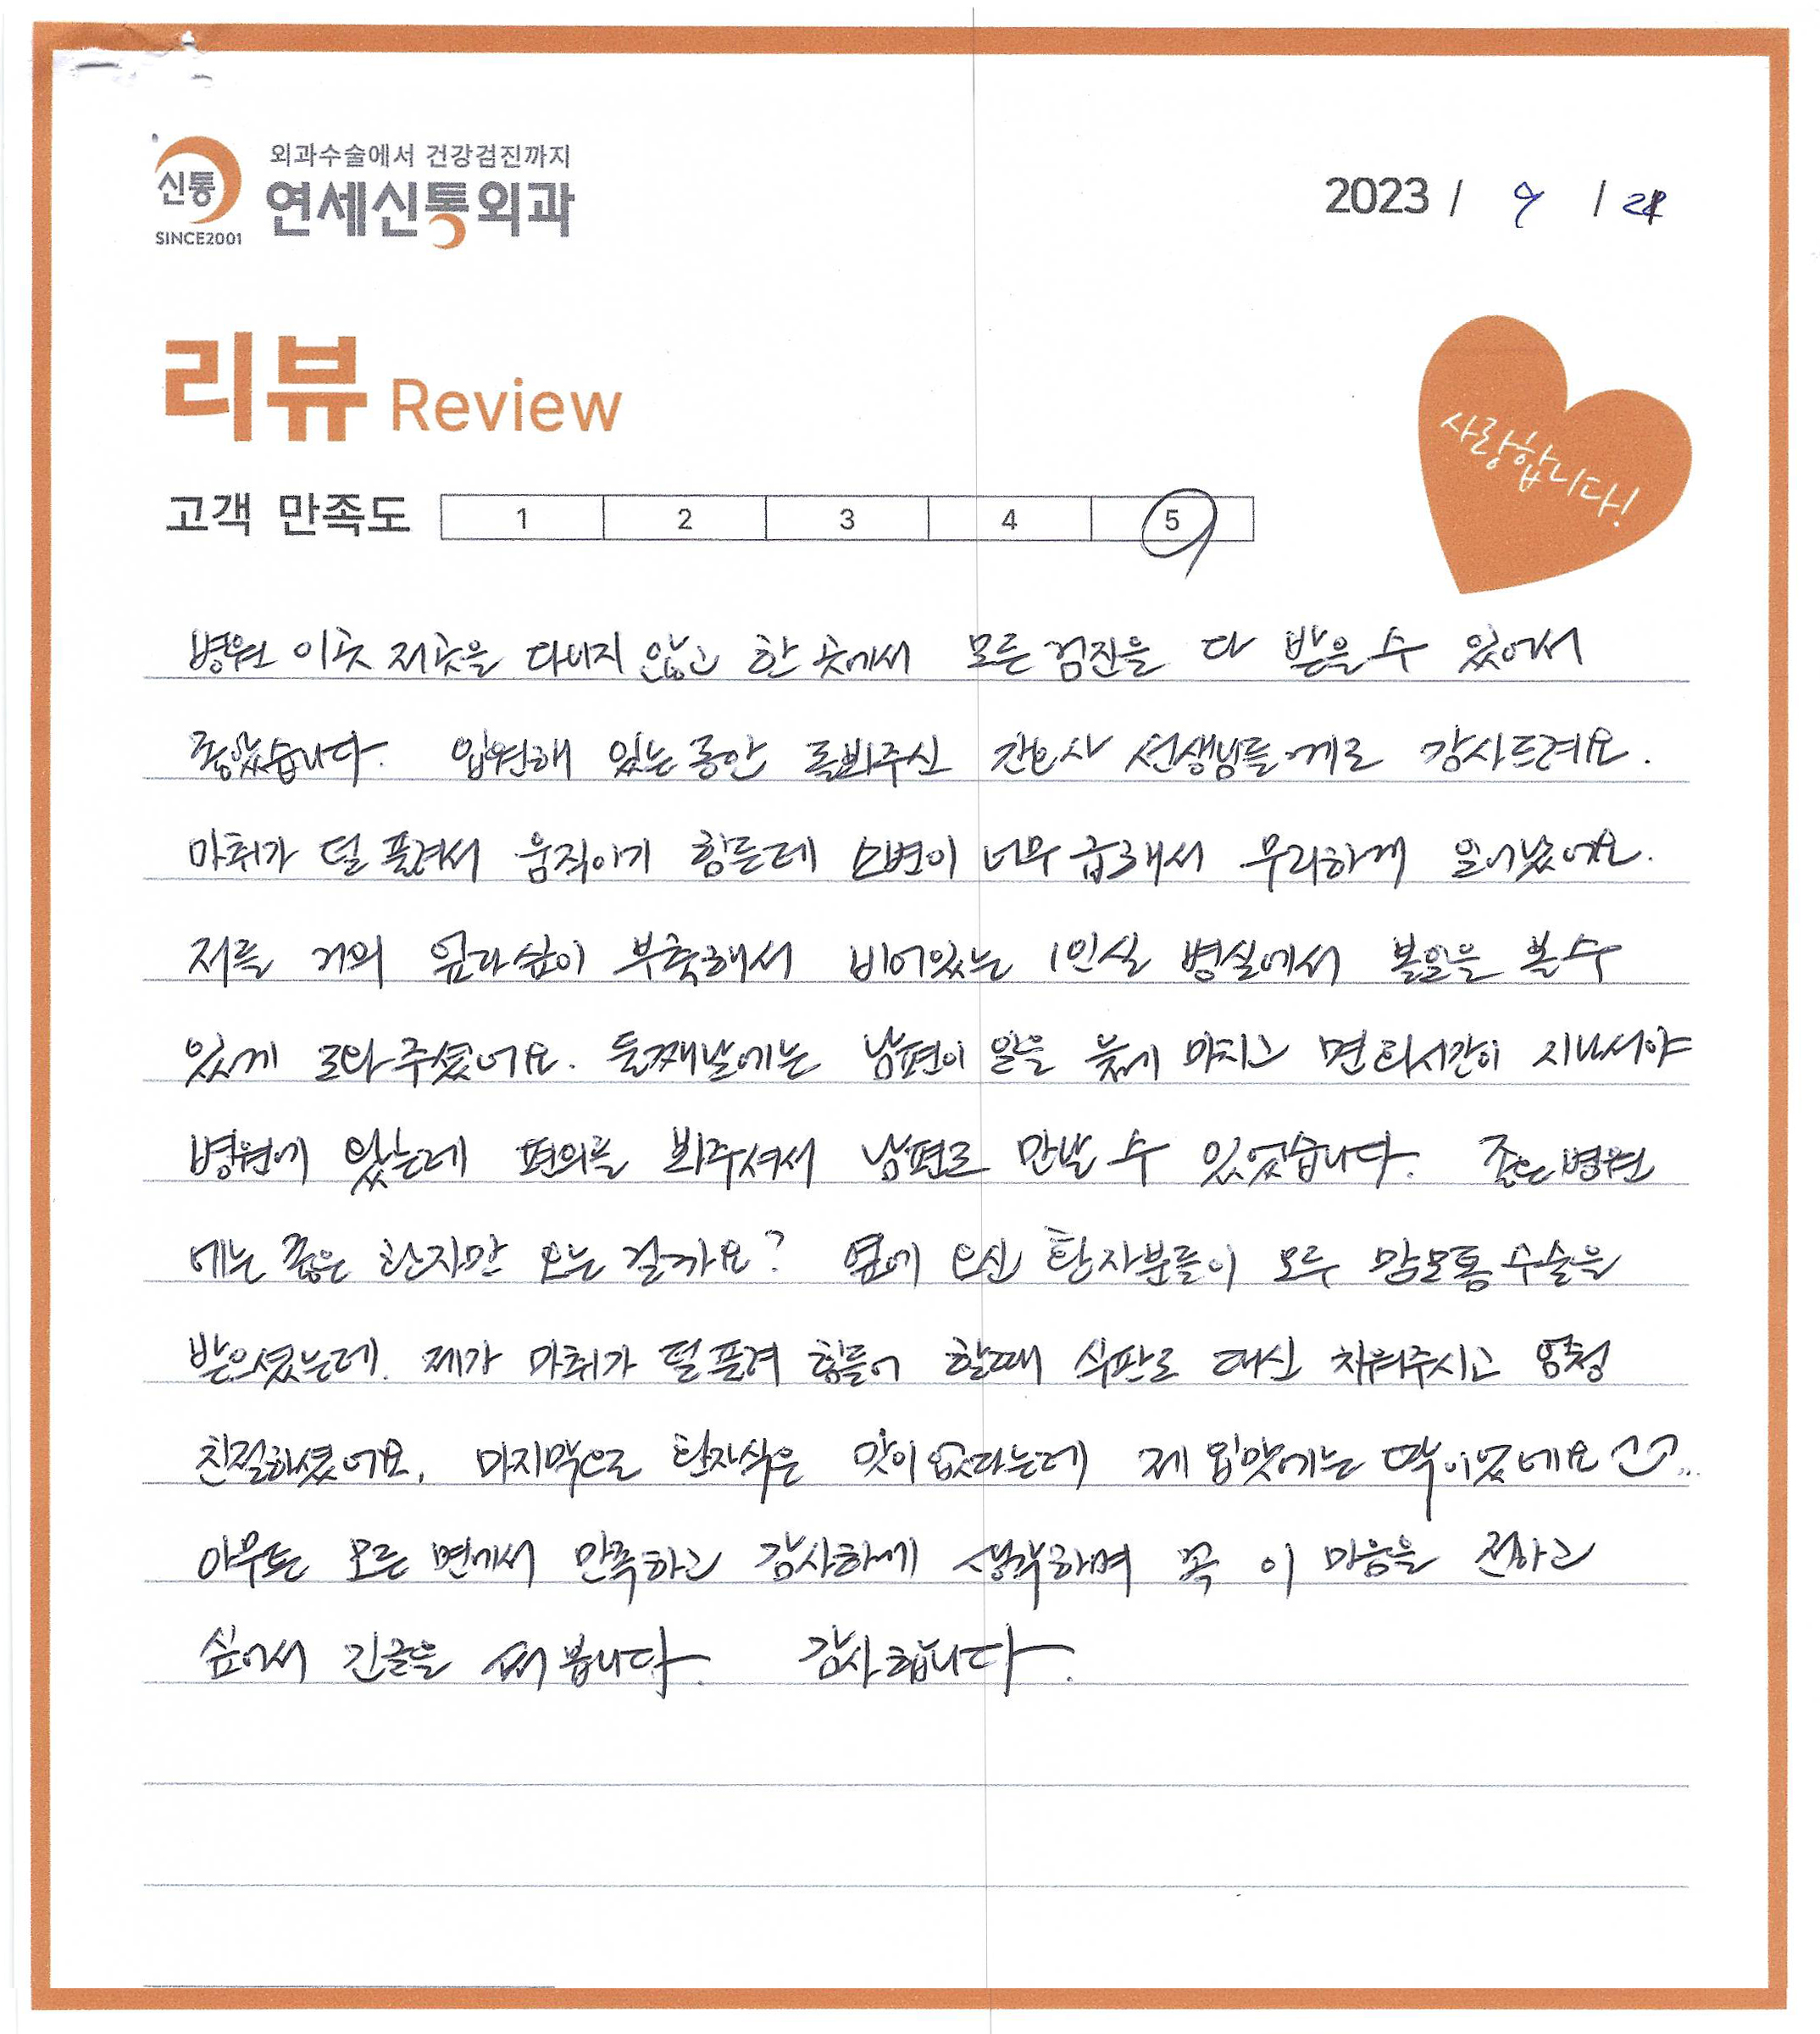 외과수술에서 건강검진까지
신통
연세신통외과
SINCE2001
2023 / 9 / 21
리뷰 Review
사랑합니다!
고객 만족도 1 2 3 4 5
병원 이곳 저곳을 다니지 않고 한 곳에서 모든 검진을 다 받을 수 있어서
좋았습니다. 입원해 있는 동안 돌봐주신 간호사 선생님들께도 감사드려요.
마취가 덜 풀려서 움직이기 힘든데 소변이 너무 급해서 무리하게 일어났어요.
저를 거의 업다싶이 부축해서 비어있는 1인실 병실에서 볼일을 볼 수
있게 도와 주셨어요. 둘째날에는 남편이 일을 늦게 마치고 면회시간이 지나서야
병원에 왔는데 편의를 봐주셔서 남편도 만날 수 있었습니다. 좋은 병원
에는 좋은 환자만 오는 걸까요? 옆에 오신 환자분들이 모두 맘모톰 수술을
받으셨는데. 제가 마취가 덜 풀려 힘들어 할때 식판도 대신 치워주시고 엄청
친절하셨어요. 마지막으로 환자식은 맛이 없다는데 제 입맛에는 딱이었네요 ^^...
아무튼 모든 면에서 만족하고 감사하게 생각하며 꼭 이 마음을 전하고
싶어서 긴글을 써 봅니다. 감사합니다.